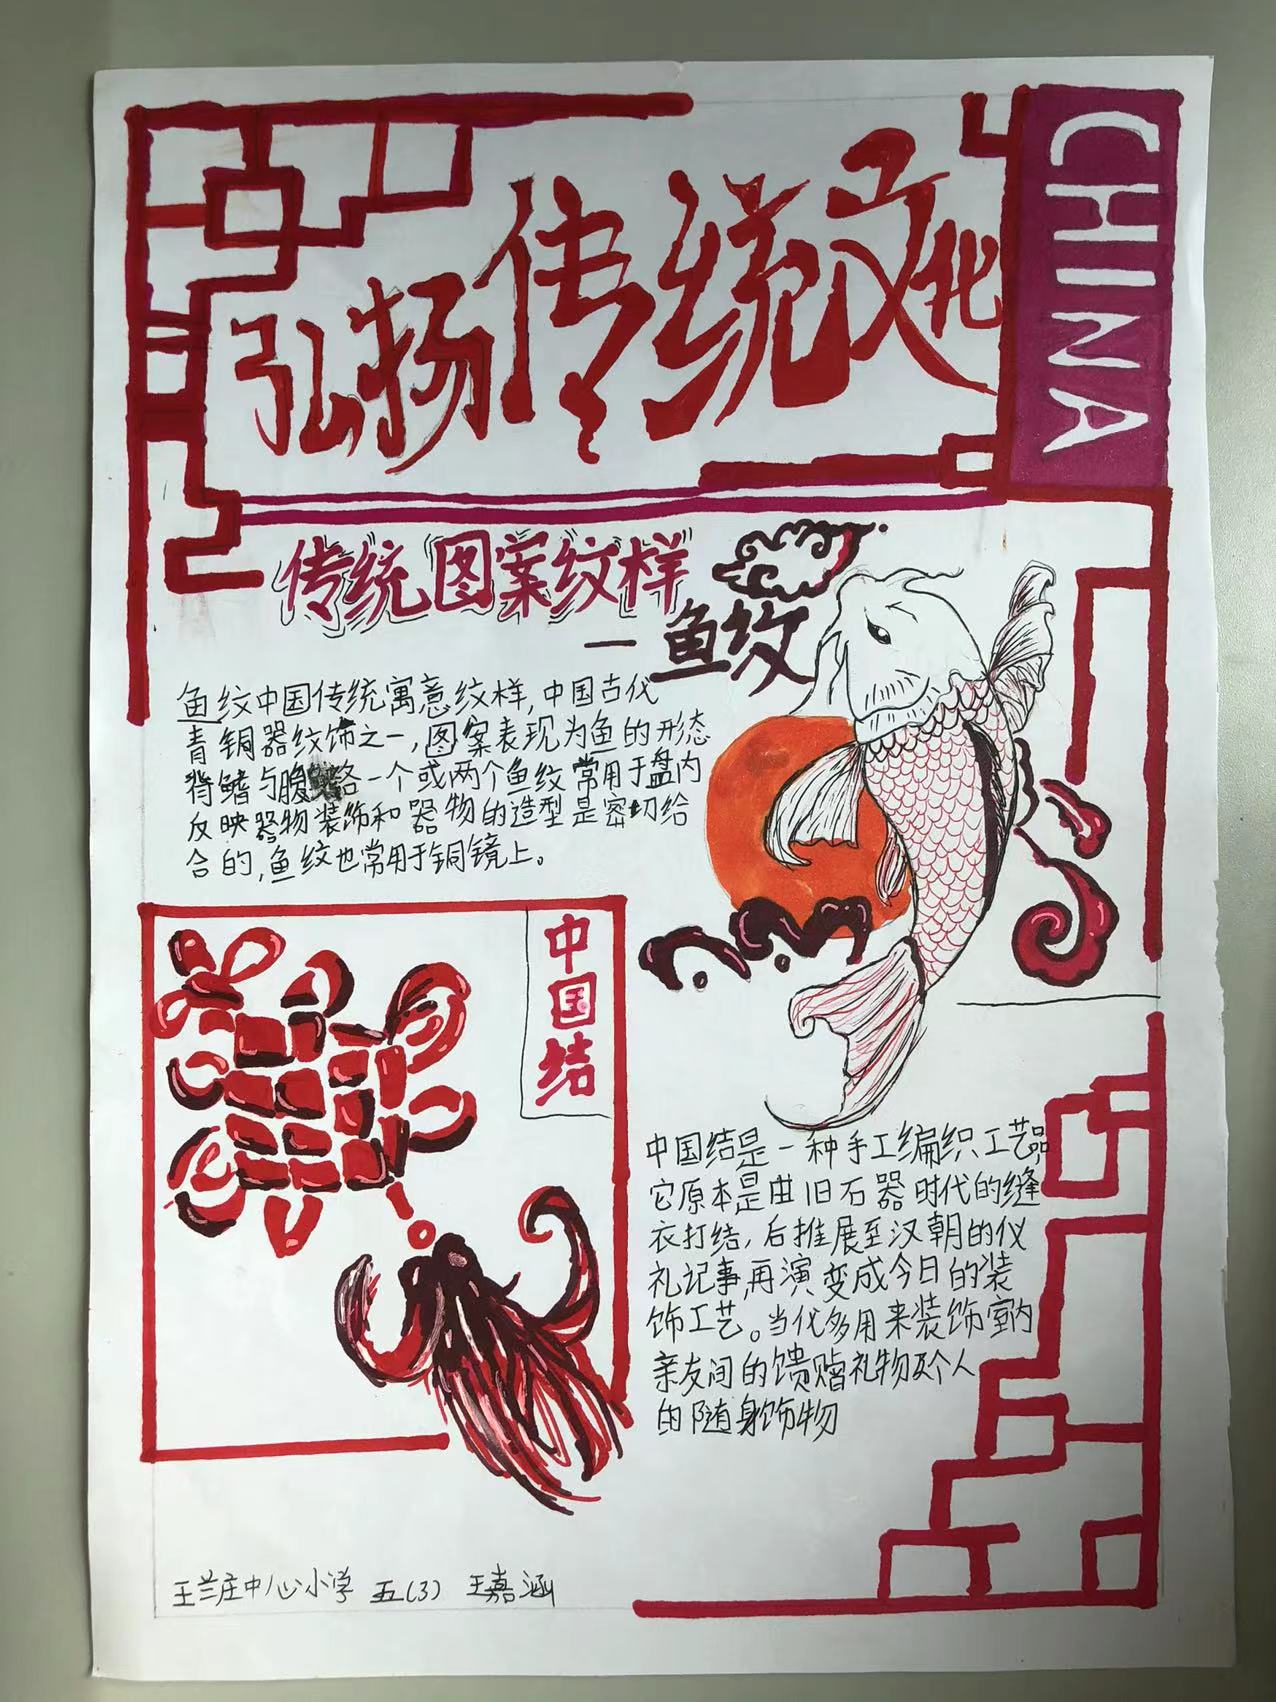 弘扬传统文化
CHINA
传统图案纹样
一鱼纹
鱼纹中国传统寓意纹样,中国古代
青铜器纹饰之一,图案表现为鱼的形态
背鳍与腹 一个或两个鱼纹常用于盘内
反映器物装饰和器物的造型是密切给
合的,鱼纹也常用于铜镜上。
中国结
中国结是一种手工编织工艺品,
它原本是由旧石器时代的缝
衣打结,后推展至汉朝的仪
礼记事,再演变成今日的装
饰工艺。当代多用来装饰室内
亲友间的馈赠礼物及个人
的随身饰物
王兰庄中心小学 五(3) 王嘉涵